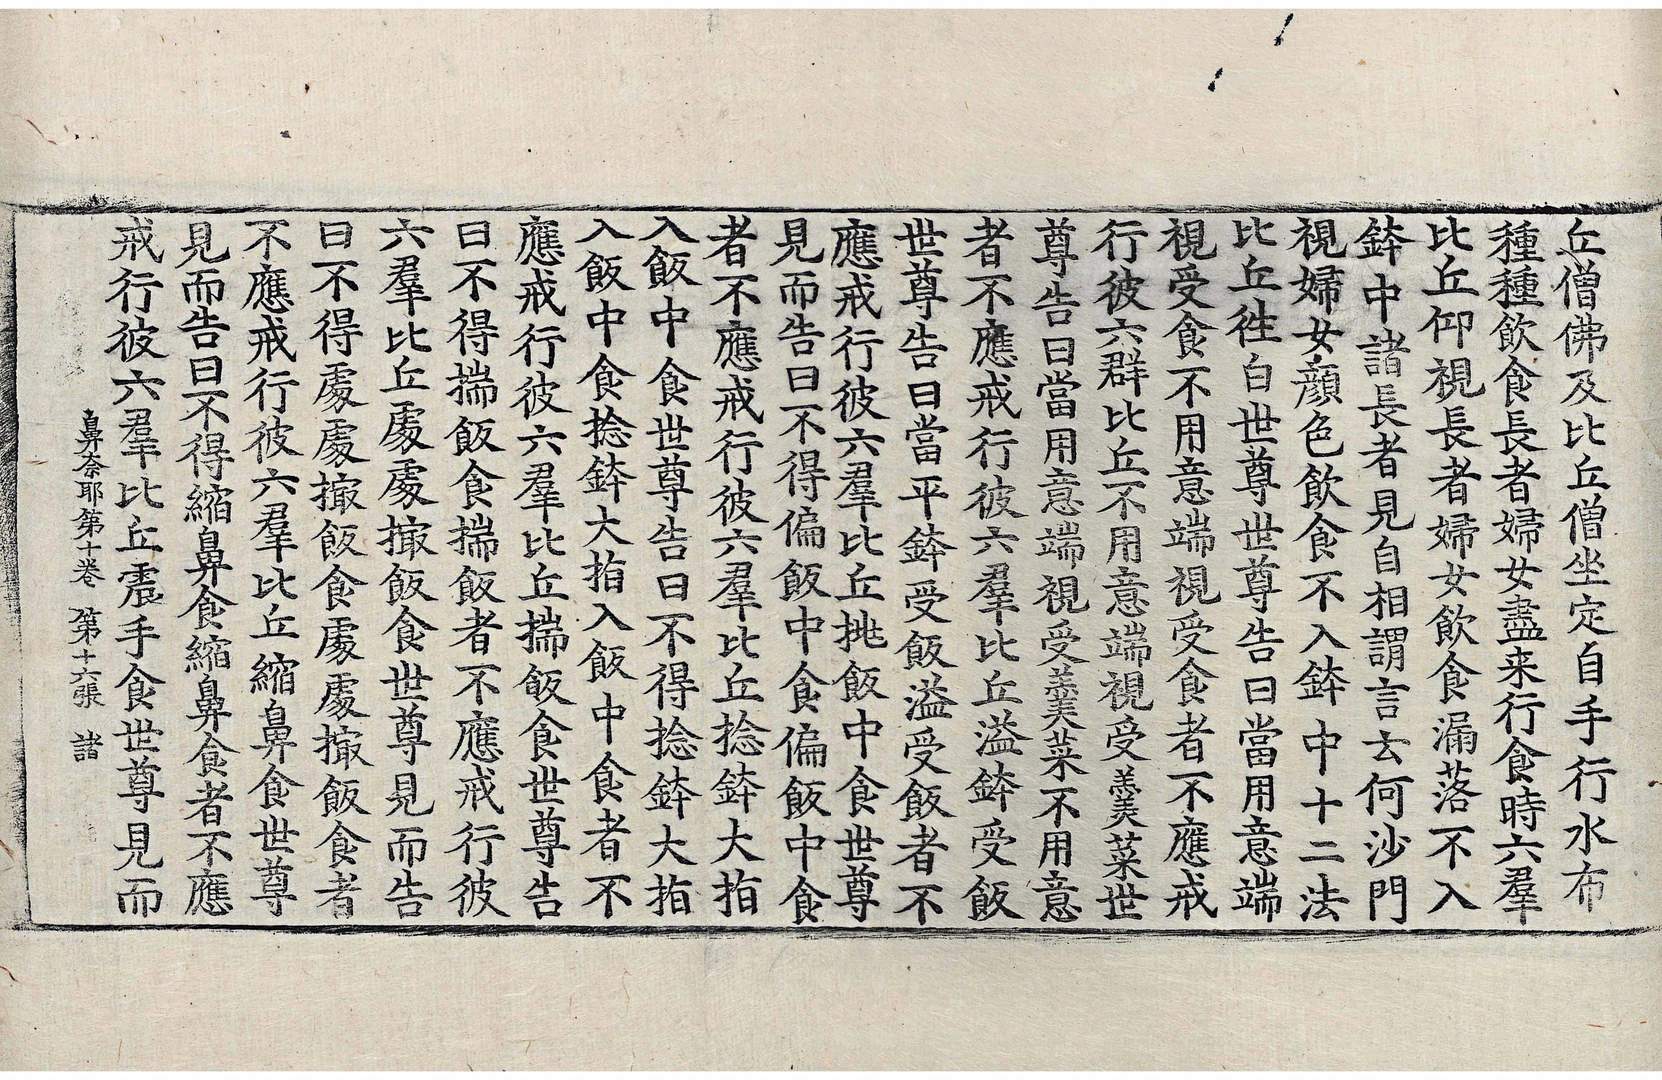 丘僧佛及比丘僧坐定自手行水布
種種飲食長者婦女盡来行食時六羣
比丘仰視長者婦女飲食漏落不入
鉢中諸長者見自相謂言云何沙門
視婦女顔色飲食不入鉢中十二法
比丘徃白世尊世尊告曰當用意端
視受食不用意端視受食者不應戒
行彼六群比丘不用意端視受羹菜世
尊告曰當用意端視受羹菜不用意
者不應戒行彼六羣比丘溢鉢受飯
世尊告曰當平鉢受飯溢受飯者不
應戒行彼六羣比丘挑飯中食世尊
見而告曰不得偏飯中食偏飯中食
者不應戒行彼六羣比丘捻鉢大指
入飯中食世尊告曰不得捻鉢大指
入飯中食捻鉢大指入飯中食者不
應戒行彼六羣比丘揣飯食世尊告
曰不得揣飯食揣飯者不應戒行彼
六羣比丘處處撮飯食世尊見而告
曰不得處處撮飯食處處撮飯食者
不應戒行彼六羣比丘縮鼻食世尊
見而告曰不得縮鼻食縮鼻食者不應
戒行彼六羣比丘震手食世尊見而
鼻奈耶第十卷 第十六張 諸